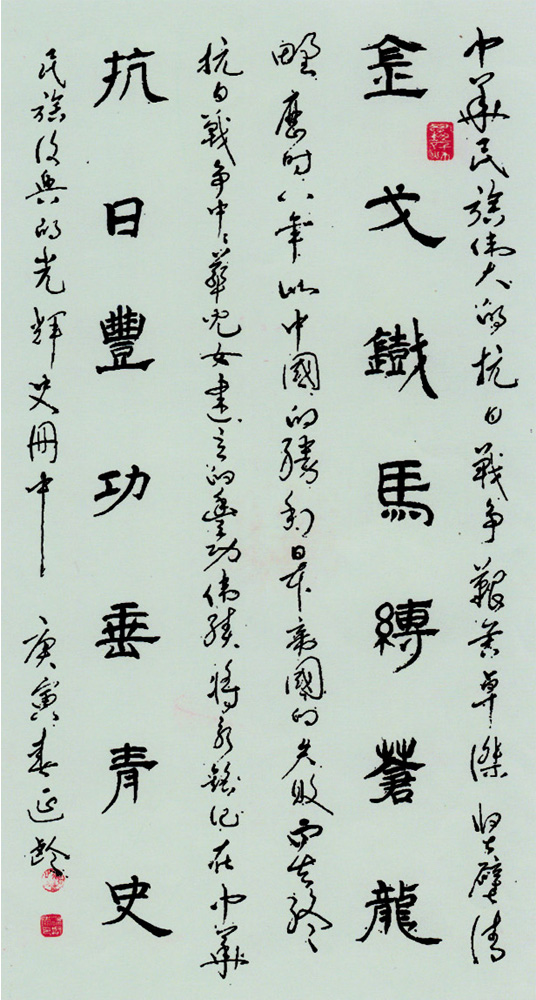 中華民族伟大的抗日戰争艱苦卓傑堅壁清
金戈鐵馬縛蒼龍
野歷时八年以中國的勝利日本帝國的失敗而告終
抗日戰争中〻華兒女建立的豐功伟績将永銘记在中華
抗日豐功垂青史
民族復興的光輝史册中 庚寅春延齡